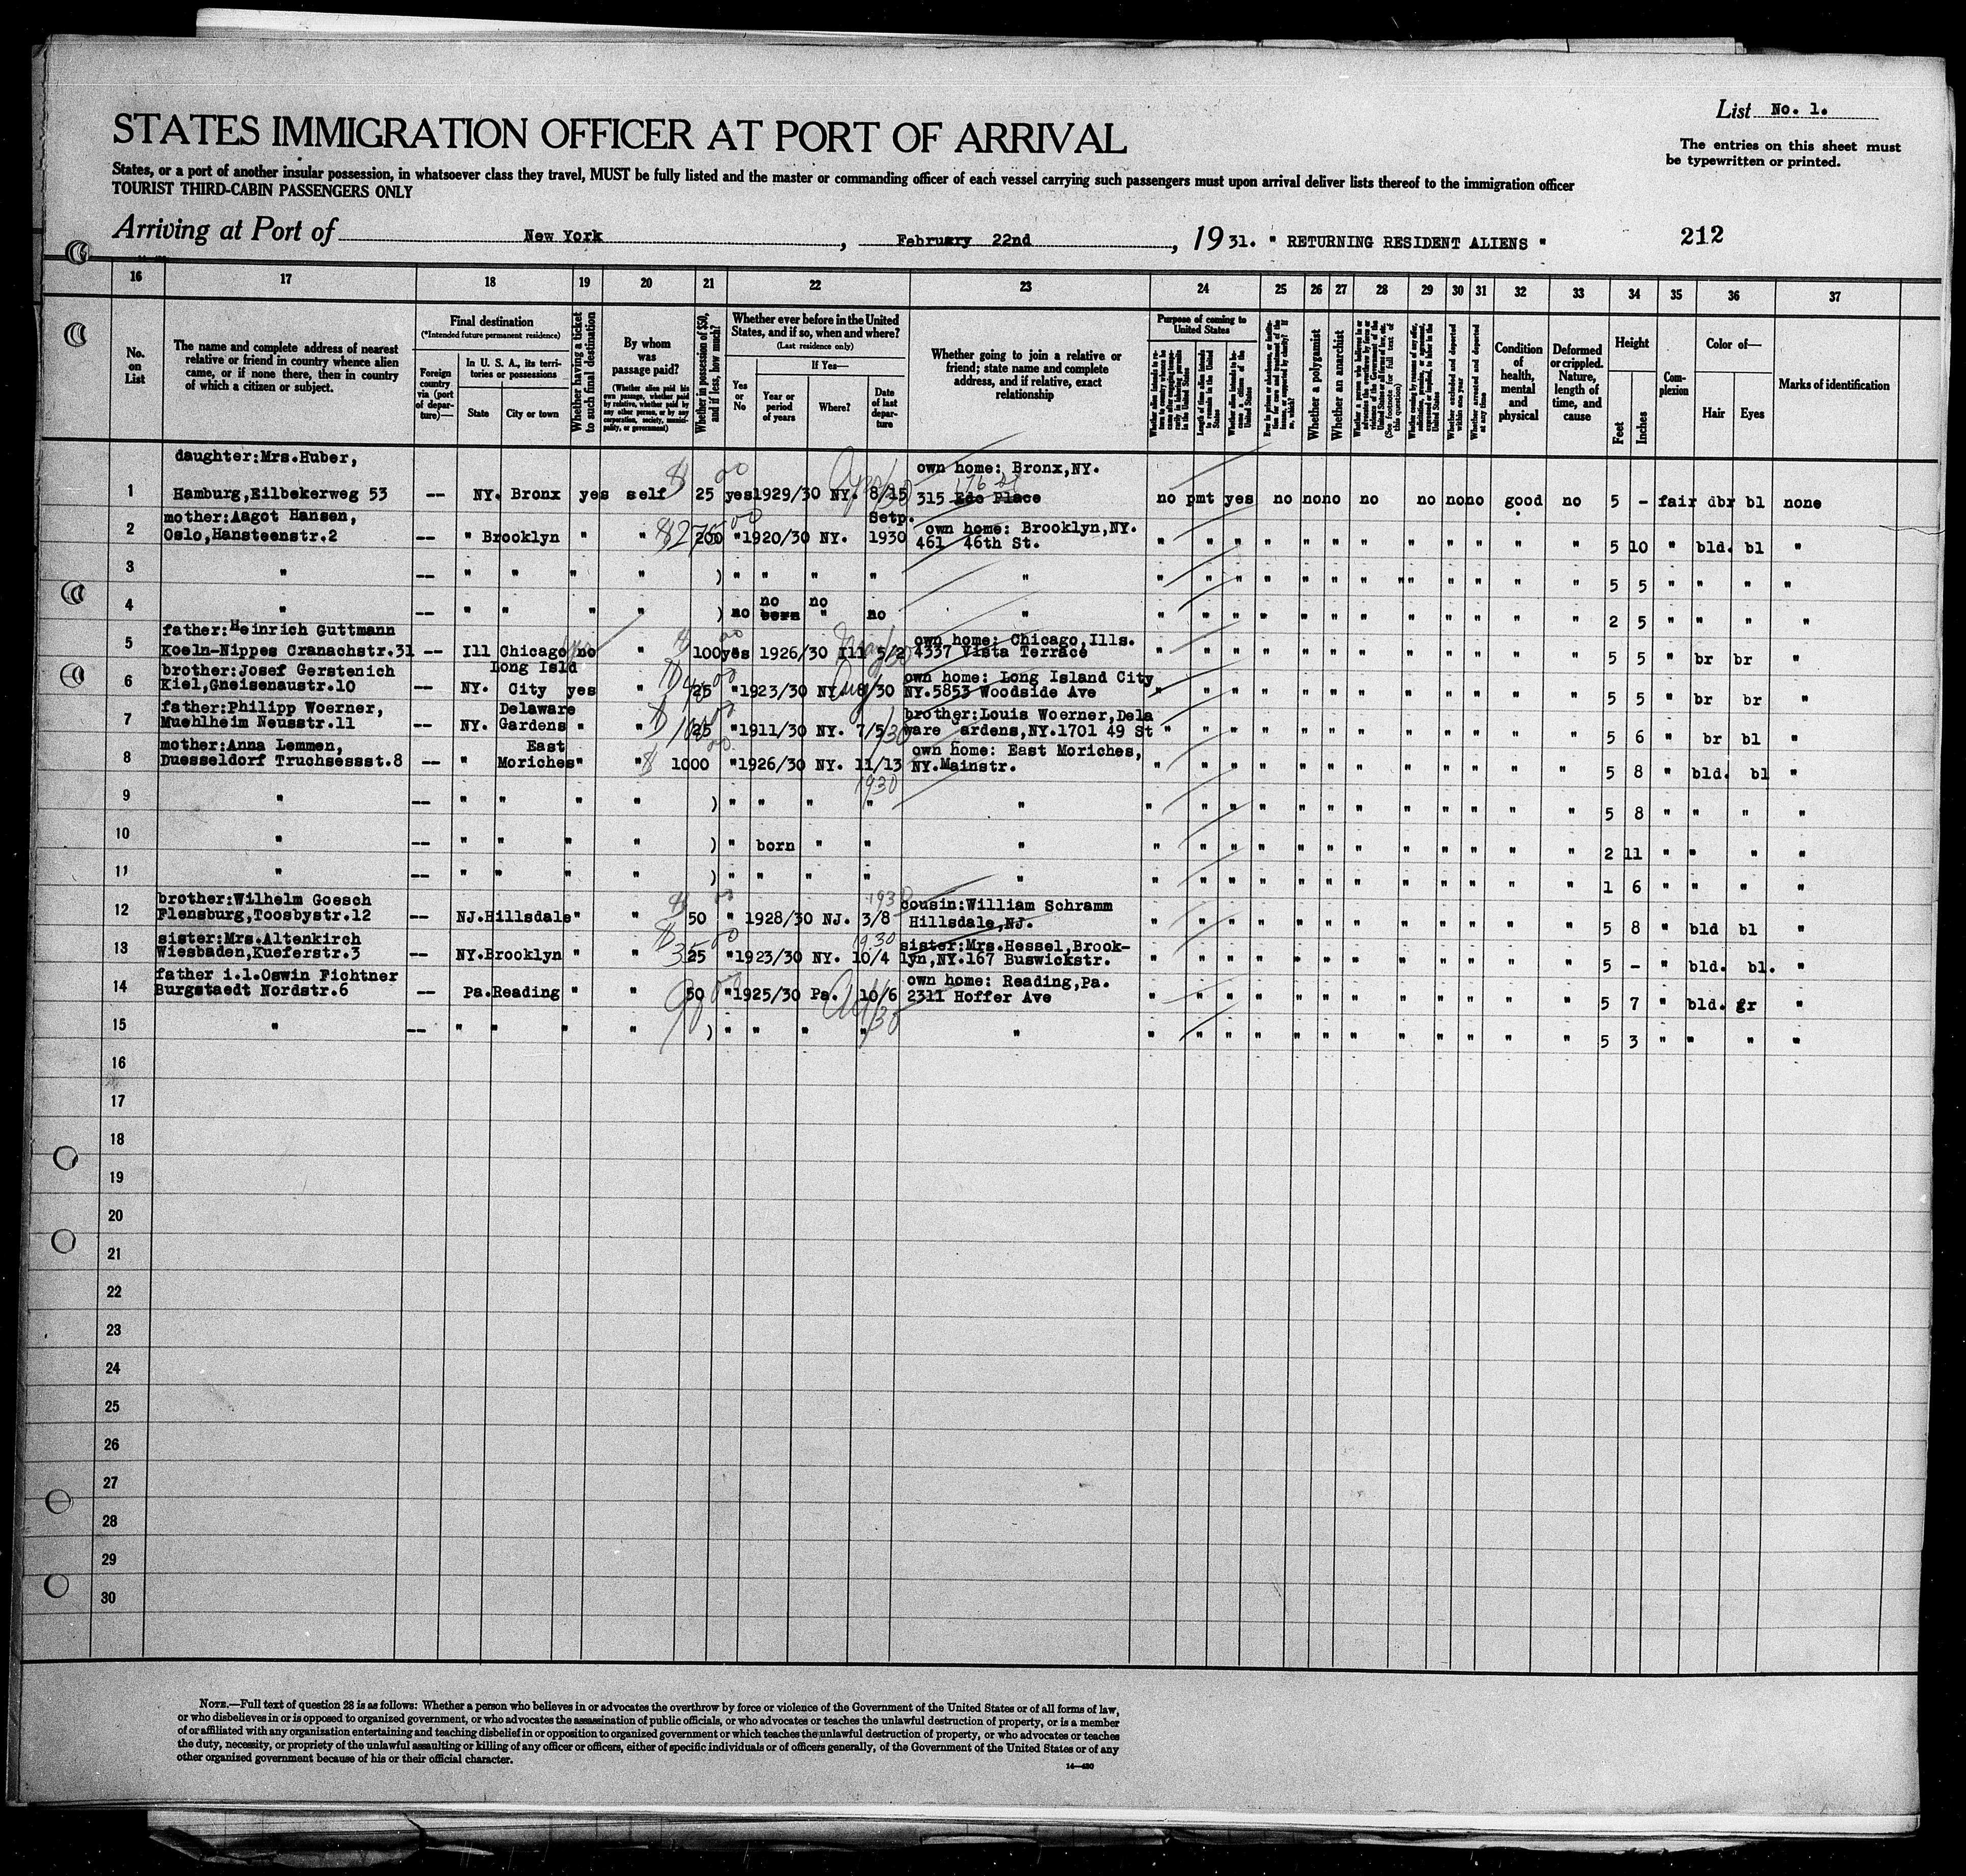 List No. 1.
STATES IMMIGRATION OFFICER AT PORT OF ARRIVAL
The entries on this sheet must
be typewritten or printed.
States, or a port of another insular possession, in whatsoever class they travel, MUST be fully listed and the master or commanding officer of each vessel carrying such passengers must upon arrival deliver lists thereof to the immigration officer
TOURIST THIRD-CABIN PASSENGERS ONLY
Arriving at Port of New York, February 22nd, 1931. " RETURNING RESIDENT ALIENS " 212
16 17 18 19 20 21 22 23 24 25 26 27 28 29 30 31 32 33 34 35 36 37
No. on List
The name and complete address of nearest relative or friend in country whence alien came, or if none there, then in country of which a citizen or subject.
Final destination
(*Intended future permanent residence)
Foreign country via (port of departure)—
In U. S. A., its territories or possessions
State
City or town
Whether having a ticket to such final destination
By whom was passage paid?
(Whether alien paid his own passage, whether paid by relative, whether paid by any other person, or by any corporation, society, municipality, or government)
Whether in possession of $50, and if less, how much?
Whether ever before in the United States, and if so, when and where?
(Last residence only)
Yes or No
If Yes—
Year or period of years
Where?
Date of last departure
Whether going to join a relative or friend; state name and complete address, and if relative, exact relationship
Purpose of coming to United States
Length of time alien intends to remain in the United States
Whether alien intends to become a citizen of the United States
Whether a polygamist
Whether an anarchist
(See footnote for full text of this question)
Whether excluded and deported within one year
Whether arrested and deported at any time
Condition of health, mental and physical
Deformed or crippled. Nature, length of time, and cause
Height
Feet
Inches
Complexion
Color of—
Hair
Eyes
Marks of identification
daughter:Mrs.Huber, own home: Bronx,NY.
176 St
1 Hamburg,Eilbekerweg 53 -- NY. Bronx yes self $ 25 00 yes 1929/30 NY. 8/15 315 Edc Place no pmt yes no no no no no no no good no 5 - fair dbr bl none
mother:Aagot Hansen, Setp. own home: Brooklyn,NY.
2 Oslo,Hansteenstr.2 -- " Brooklyn " " 200 " 1920/30 NY. 1930 461 46th St. " " " " " " " " " " " " 5 10 " bld. bl "
3 " -- " " " " ) " " " " " " " " " " " " " " " " " " 5 5 " " " "
no no
4 " -- " " " " ) no born " no " " " " " " " " " " " " " " 2 5 " " " "
father:Heinrich Guttmann own home: Chicago,Ills.
5 Koeln-Nippes Cranachstr.31 -- Ill Chicago no " 100 yes 1926/30 Ill 5/2 4337 Vista Terrace " " " " " " " " " " " " 5 5 " br br "
brother:Josef Gerstenich Long Isld own home: Long Island City
6 Kiel,Gneisenaustr.10 -- NY. City yes " 25 " 1923/30 NY. 8/30 NY.5853 Woodside Ave " " " " " " " " " " " " 5 5 " br br "
father:Philipp Woerner, Delaware brother:Louis Woerner,Dela
7 Muehlheim Neusstr.11 -- NY. Gardens " " 25 " 1911/30 NY. 7/5/30 ware ardens,NY.1701 49 St " " " " " " " " " " " " 5 6 " br bl "
mother:Anna Lemmen, East own home: East Moriches,
8 Duesseldorf Truchsessst.8 -- " Moriches " " $ 1000 " 1926/30 NY. 11/13 NY.Mainstr. " " " " " " " " " " " " 5 8 " bld. bl "
1930
9 " -- " " " " ) " " " " " " " " " " " " " " " " " 5 8 " " " "
10 " -- " " " " ) " born " " " " " " " " " " " " " " " 2 11 " " " "
11 " -- " " " " ) " " " " " " " " " " " " " " " " " 1 6 " " " "
brother:Wilhelm Goesch 1930 cousin:William Schramm
12 Flensburg,Toosbystr.12 -- NJ.Hillsdale " " $ 50 00 " 1928/30 NJ. 3/8 Hillsdale,NJ. " " " " " " " " " " " " 5 8 " bld bl "
sister:Mrs.Altenkirch 1930 sister:Mrs.Hessel,Brook-
13 Wiesbaden,Kueferstr.3 -- NY.Brooklyn " " $ 35 00 25 " 1923/30 NY. 10/4 lyn,NY.167 Buswickstr. " " " " " " " " " " " " 5 - " bld. bl. "
father i.l.Oswin Fichtner own home: Reading,Pa.
14 Burgstaedt Nordstr.6 -- Pa.Reading " " 50 " 1925/30 Pa. 10/6 2311 Hoffer Ave " " " " " " " " " " " " 5 7 " bld. gr "
15 " -- " " " " ) " " " " " " " " " " " " " " " " " 5 3 " " " "
16
17
18
19
20
21
22
23
24
25
26
27
28
29
30
NOTE.—Full text of question 28 is as follows: Whether a person who believes in or advocates the overthrow by force or violence of the Government of the United States or of all forms of law,
or who disbelieves in or is opposed to organized government, or who advocates the assassination of public officials, or who advocates or teaches the unlawful destruction of property, or is a member
of or affiliated with any organization entertaining and teaching disbelief in or opposition to organized government or which teaches the unlawful destruction of property, or who advocates or teaches
the duty, necessity, or propriety of the unlawful assaulting or killing of any officer or officers, either of specific individuals or of officers generally, of the Government of the United States or of any
other organized government because of his or their official character.
14—430